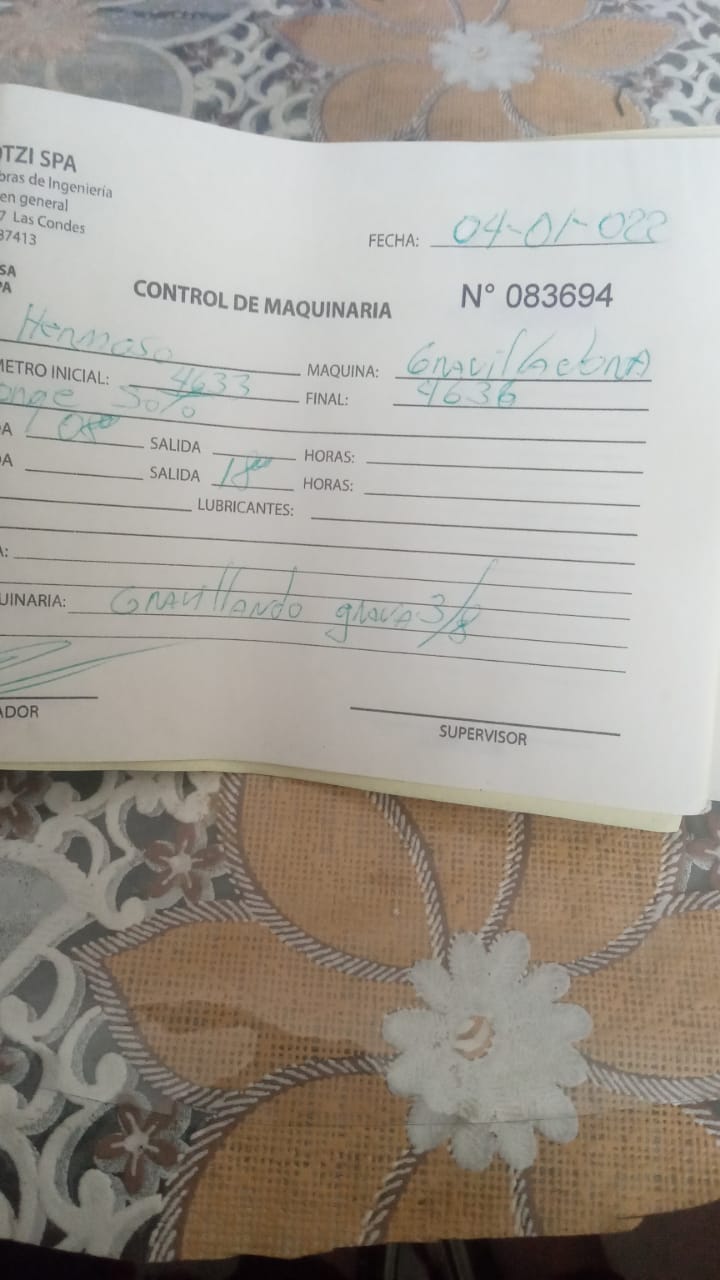 OTZI SPA
bras de Ingeniería
en general
7 Las Condes
37413
FECHA: 04-01-022
SA
PA
CONTROL DE MAQUINARIA N° 083694
Hermoso MAQUINA: Gravilladora
METRO INICIAL: 4633 FINAL: 4636
onge 50%
DA 08⁰⁰ SALIDA HORAS:
DA SALIDA 18⁰⁰ HORAS:
LUBRICANTES:
A:
UINARIA: Gravillando grava 3/8
ADOR
SUPERVISOR